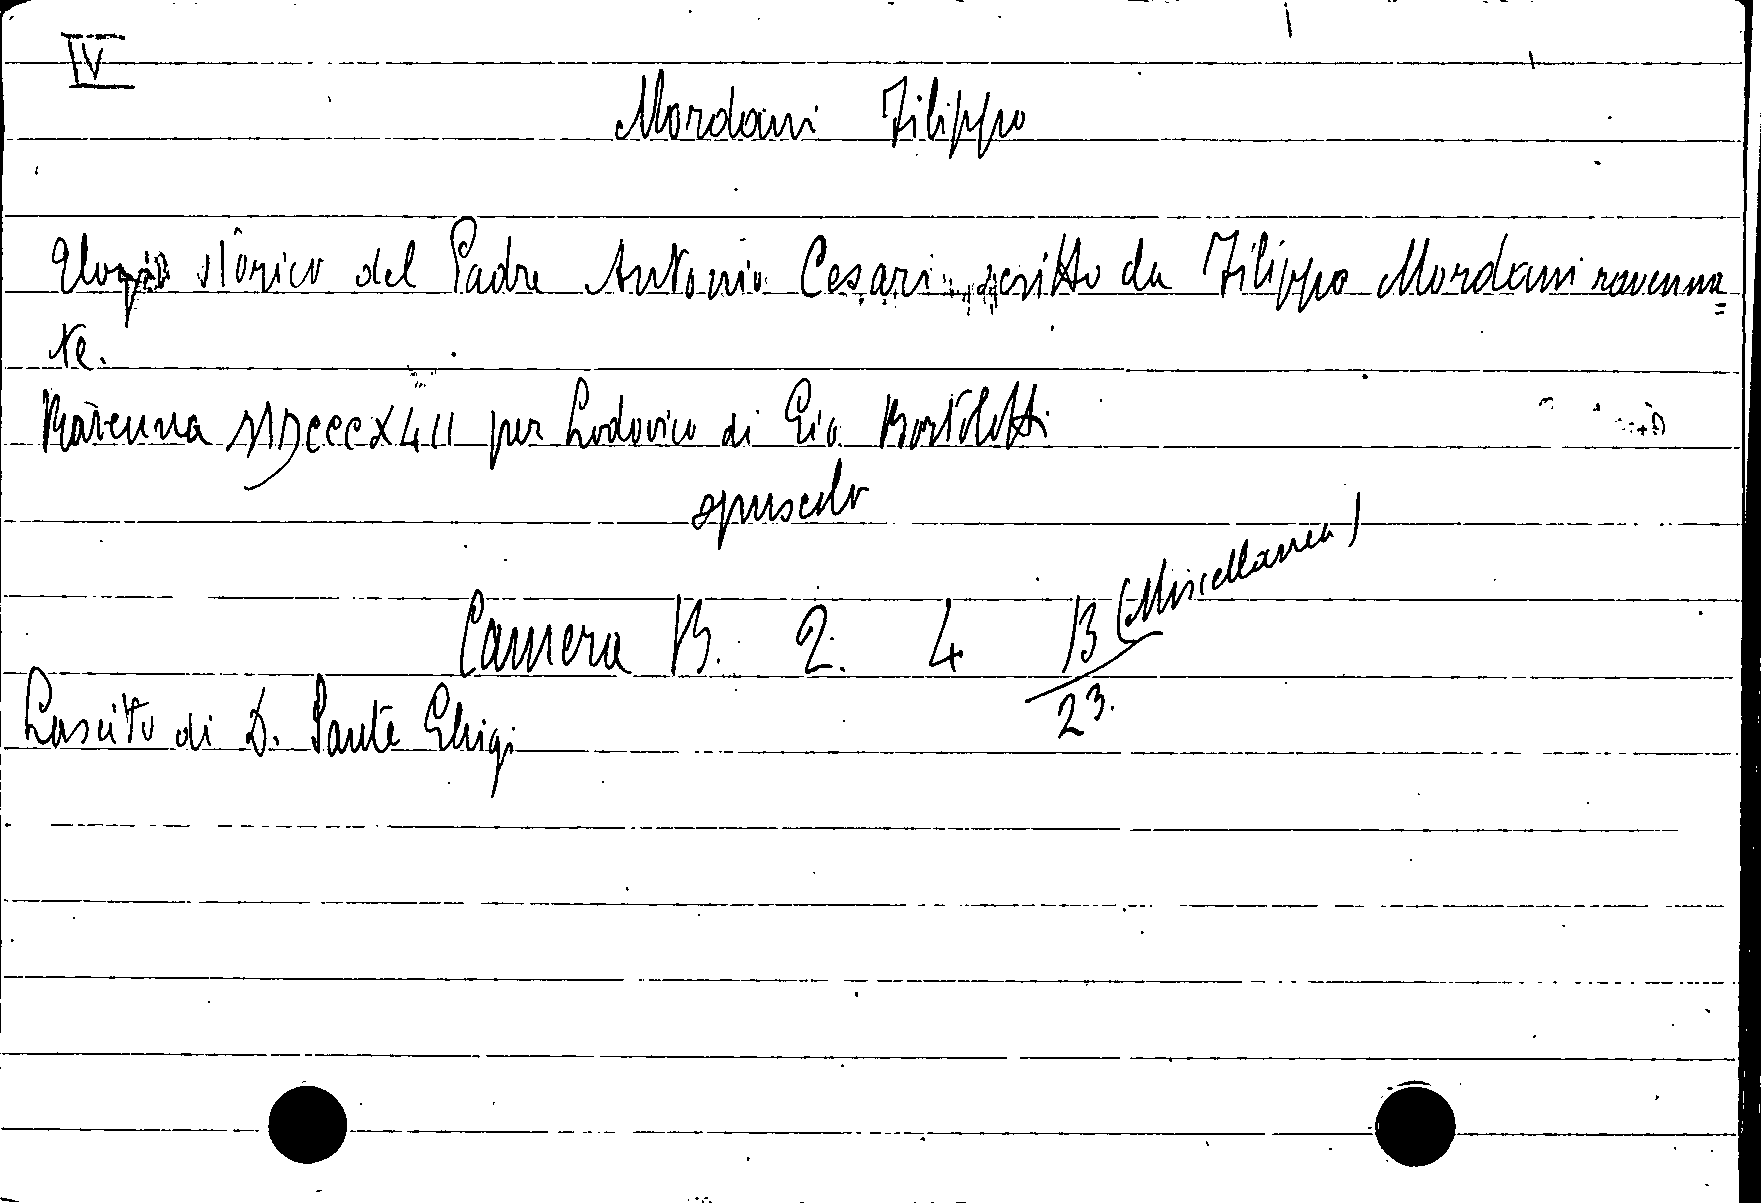 IV
Mordani Filippo
Elogio storico del Padre Antonio Cesari scritto da Filippo Mordani ravenna=
te.
Ravenna MDCCCXLII per Lodovico di Gio. Bortolotti
opuscolo
Camera B. 2. 4 B (Miscellanea)
23.
Lascito di D. Sante Ghigi